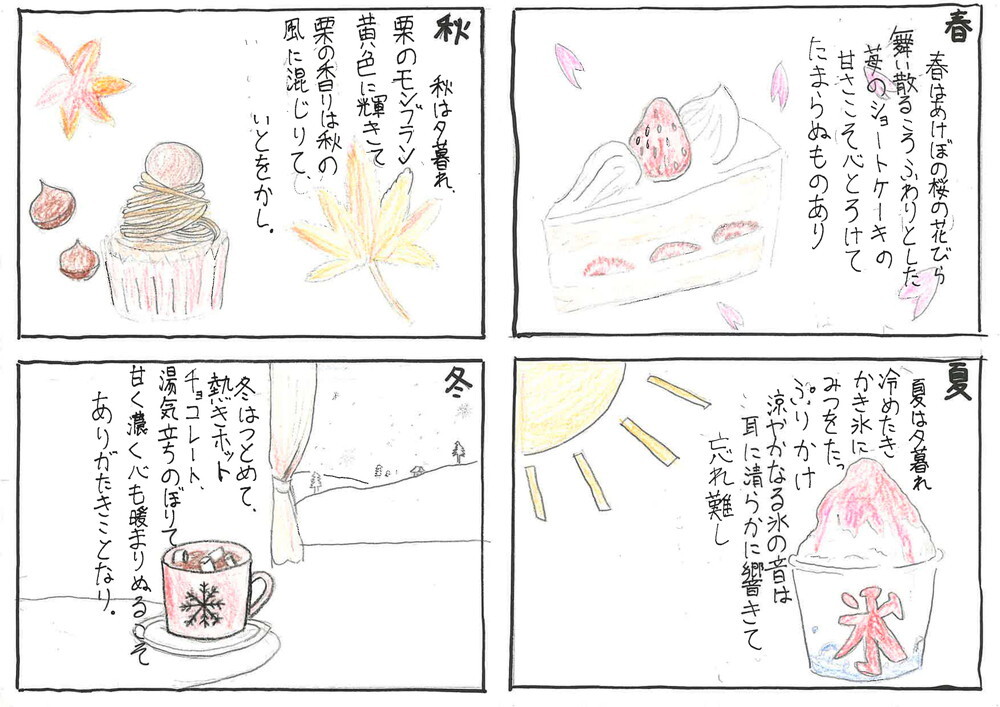 春
春はあけぼの桜の花びら
舞い散るころふわりとした
苺のショートケーキの
甘さこそ心とろけて
たまらぬものあり
夏
夏は夕暮れ
冷めたき
かき氷に
みつをたっ
ぷりかけ
涼やかなる氷の音は
耳に清らかに響きて
忘れ難し
氷
秋
秋は夕暮れ、
栗のモンブラン
黄色に輝きて
栗の香りは秋の
風に混じりて、
いとをかし。
冬
冬はつとめて、
熱きホット
チョコレート、
湯気立ちのぼりて
甘く濃く心も暖まりぬるこそ
ありがたきことなり。